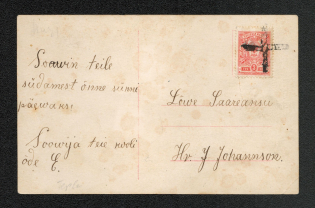 Soowin teile
südamest õnne sünni
päewaks!
Soowija teie kooli
õde E.
Löwe Saarwansü
Hr. J Johannson.